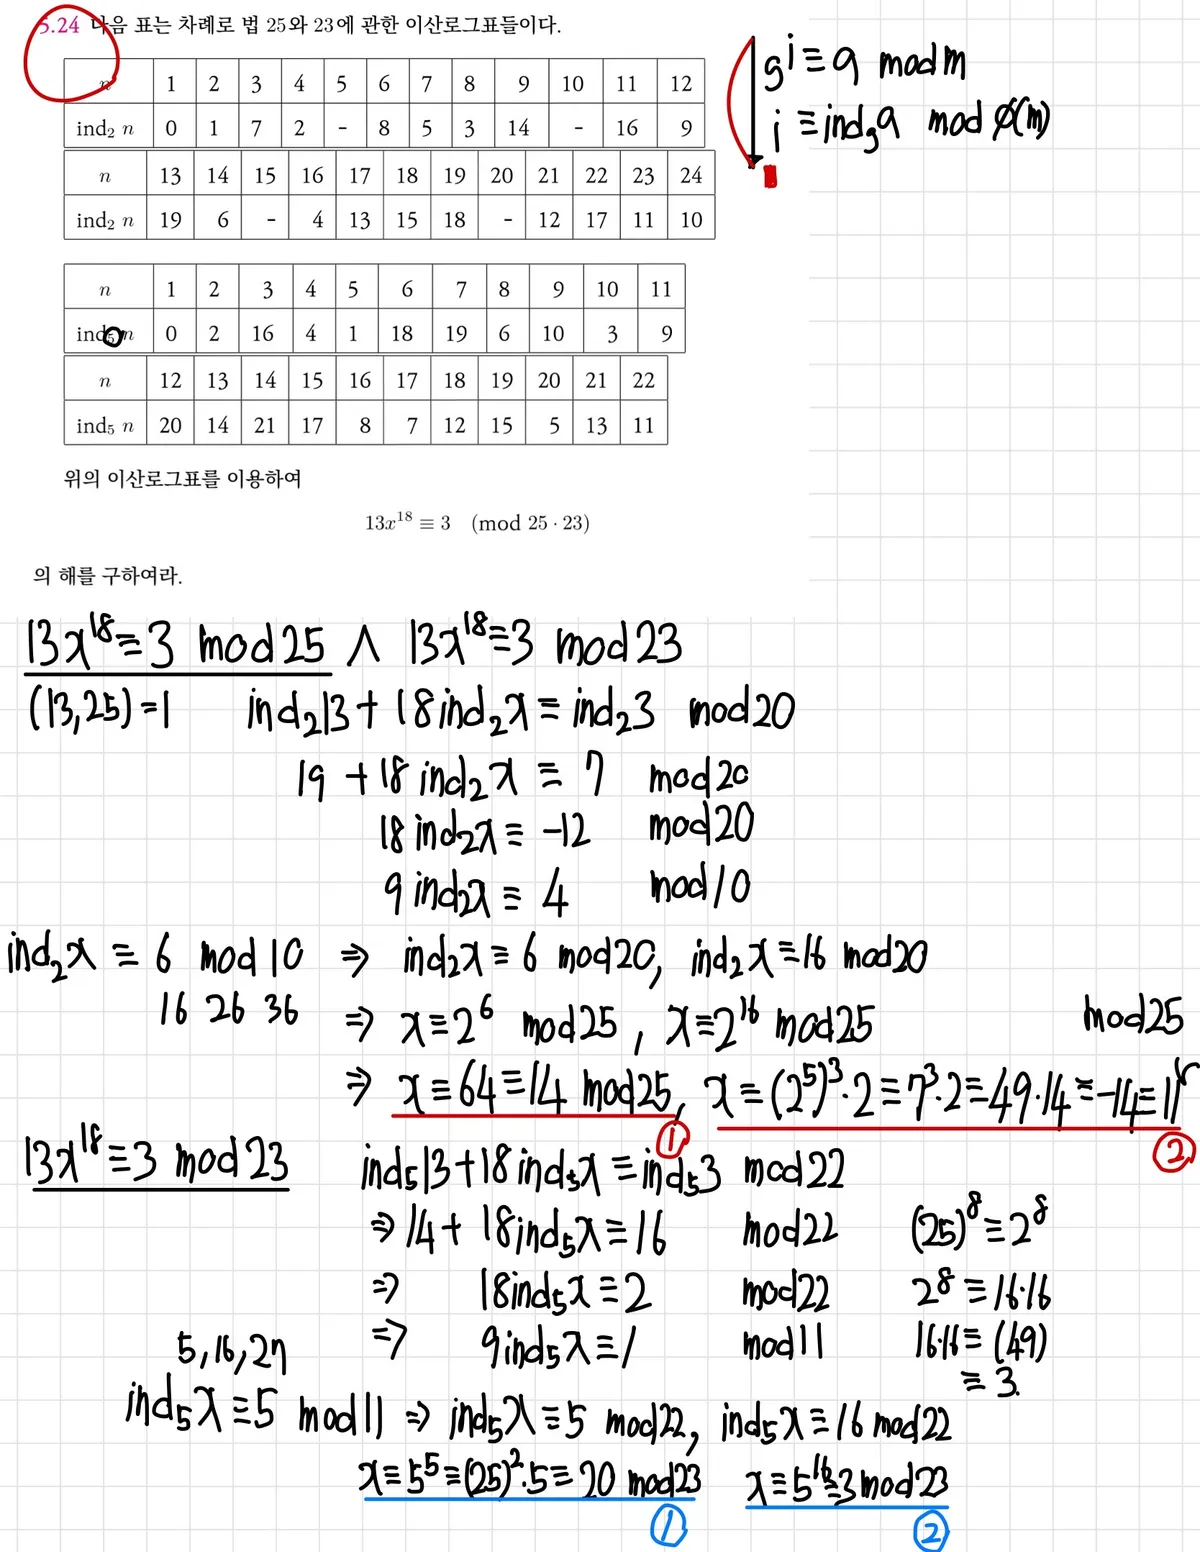 5.24 다음 표는 차례로 법 25와 23에 관한 이산로그표들이다.
n 1 2 3 4 5 6 7 8 9 10 11 12
ind₂ n 0 1 7 2 - 8 5 3 14 - 16 9
n 13 14 15 16 17 18 19 20 21 22 23 24
ind₂ n 19 6 - 4 13 15 18 - 12 17 11 10
gⁱ ≡ a mod m
i ≡ ind_g a mod φ(m)
n 1 2 3 4 5 6 7 8 9 10 11
ind₅ n 0 2 16 4 1 18 19 6 10 3 9
n 12 13 14 15 16 17 18 19 20 21 22
ind₅ n 20 14 21 17 8 7 12 15 5 13 11
위의 이산로그표를 이용하여
13x¹⁸ ≡ 3 (mod 25 · 23)
의 해를 구하여라.
13x¹⁸ ≡ 3 mod 25 ∧ 13x¹⁸ ≡ 3 mod 23
(13,25)=1 ind₂13 + 18 ind₂x ≡ ind₂3 mod 20
19 + 18 ind₂x ≡ 7 mod 20
18 ind₂x ≡ -12 mod 20
9 ind₂x ≡ 4 mod 10
ind₂x ≡ 6 mod 10 ⇒ ind₂x ≡ 6 mod 20, ind₂x ≡ 16 mod 20
16 26 36 ⇒ x ≡ 2⁶ mod 25, x ≡ 2¹⁶ mod 25 mod 25
⇒ x ≡ 64 ≡ 14 mod 25, x ≡ (2⁵)³·2 ≡ 7³·2 ≡ 49·14 ≡ -14 ≡ 11
① ②
13x¹⁸ ≡ 3 mod 23 ind₅13 + 18 ind₅x ≡ ind₅3 mod 22
⇒ 14 + 18 ind₅x ≡ 16 mod 22 (25)⁸ ≡ 2⁸
⇒ 18 ind₅x ≡ 2 mod 22 2⁸ ≡ 16·16
5, 16, 27 ⇒ 9 ind₅x ≡ 1 mod 11 16·16 ≡ (49)
≡ 3.
ind₅x ≡ 5 mod 11 ⇒ ind₅x ≡ 5 mod 22, ind₅x ≡ 16 mod 22
x ≡ 5⁵ ≡ (25)²·5 ≡ 20 mod 23 x ≡ 5¹⁶ ≡ 3 mod 23
① ②